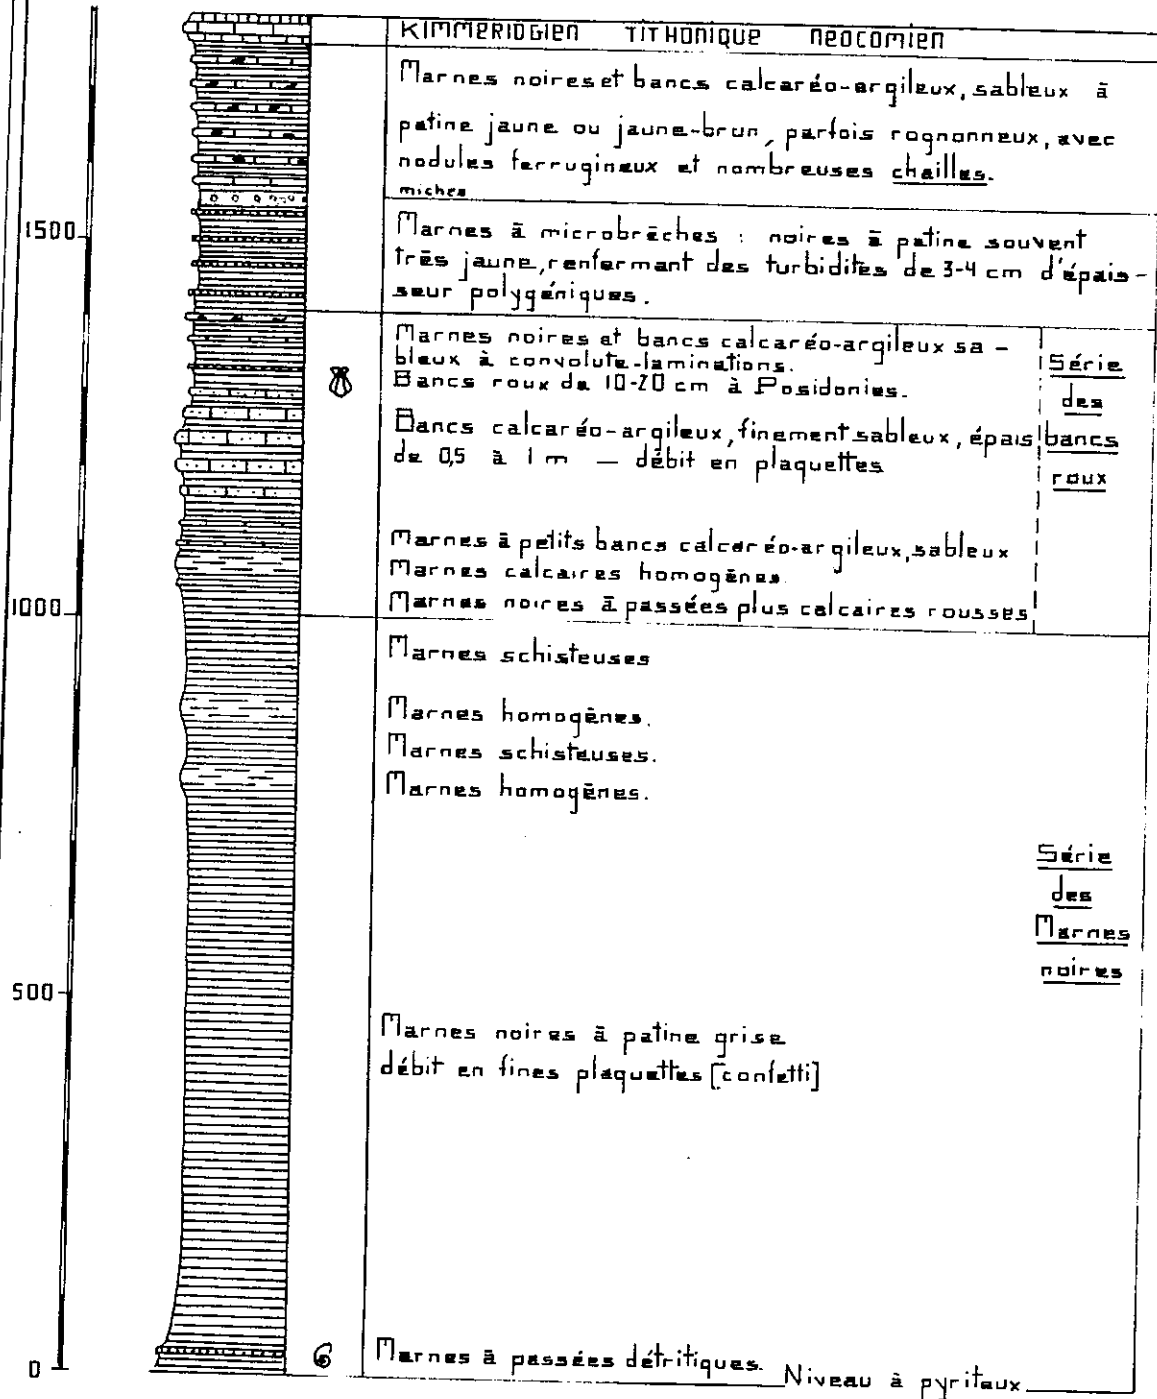 KIMMERIDGIEN TITHONIQUE NEOCOMIEN
Marnes noires et bancs calcaréo-argileux, sableux à
patine jaune ou jaune-brun, parfois rognonneux, avec
nodules ferrugineux et nombreuses chailles.
miches
1500
Marnes à microbrèches : noires à patine souvent
très jaune, renfermant des turbidites de 3-4 cm d'épais-
seur polygéniques.
Marnes noires et bancs calcaréo-argileux sa-
bleux à convolute-laminations.
Bancs roux de 10-20 cm à Posidonies.
Bancs calcaréo-argileux, finement sableux, épais
de 0,5 à 1 m — débit en plaquettes
Série
des
bancs
roux
Marnes à petits bancs calcaréo-argileux, sableux
Marnes calcaires homogènes.
1000
Marnes noires à passées plus calcaires rousses
Marnes schisteuses
Marnes homogènes.
Marnes schisteuses.
Marnes homogènes.
Série
des
Marnes
noires
500
Marnes noires à patine grise
débit en fines plaquettes [confetti]
0
Marnes à passées détritiques. Niveau à pyriteux